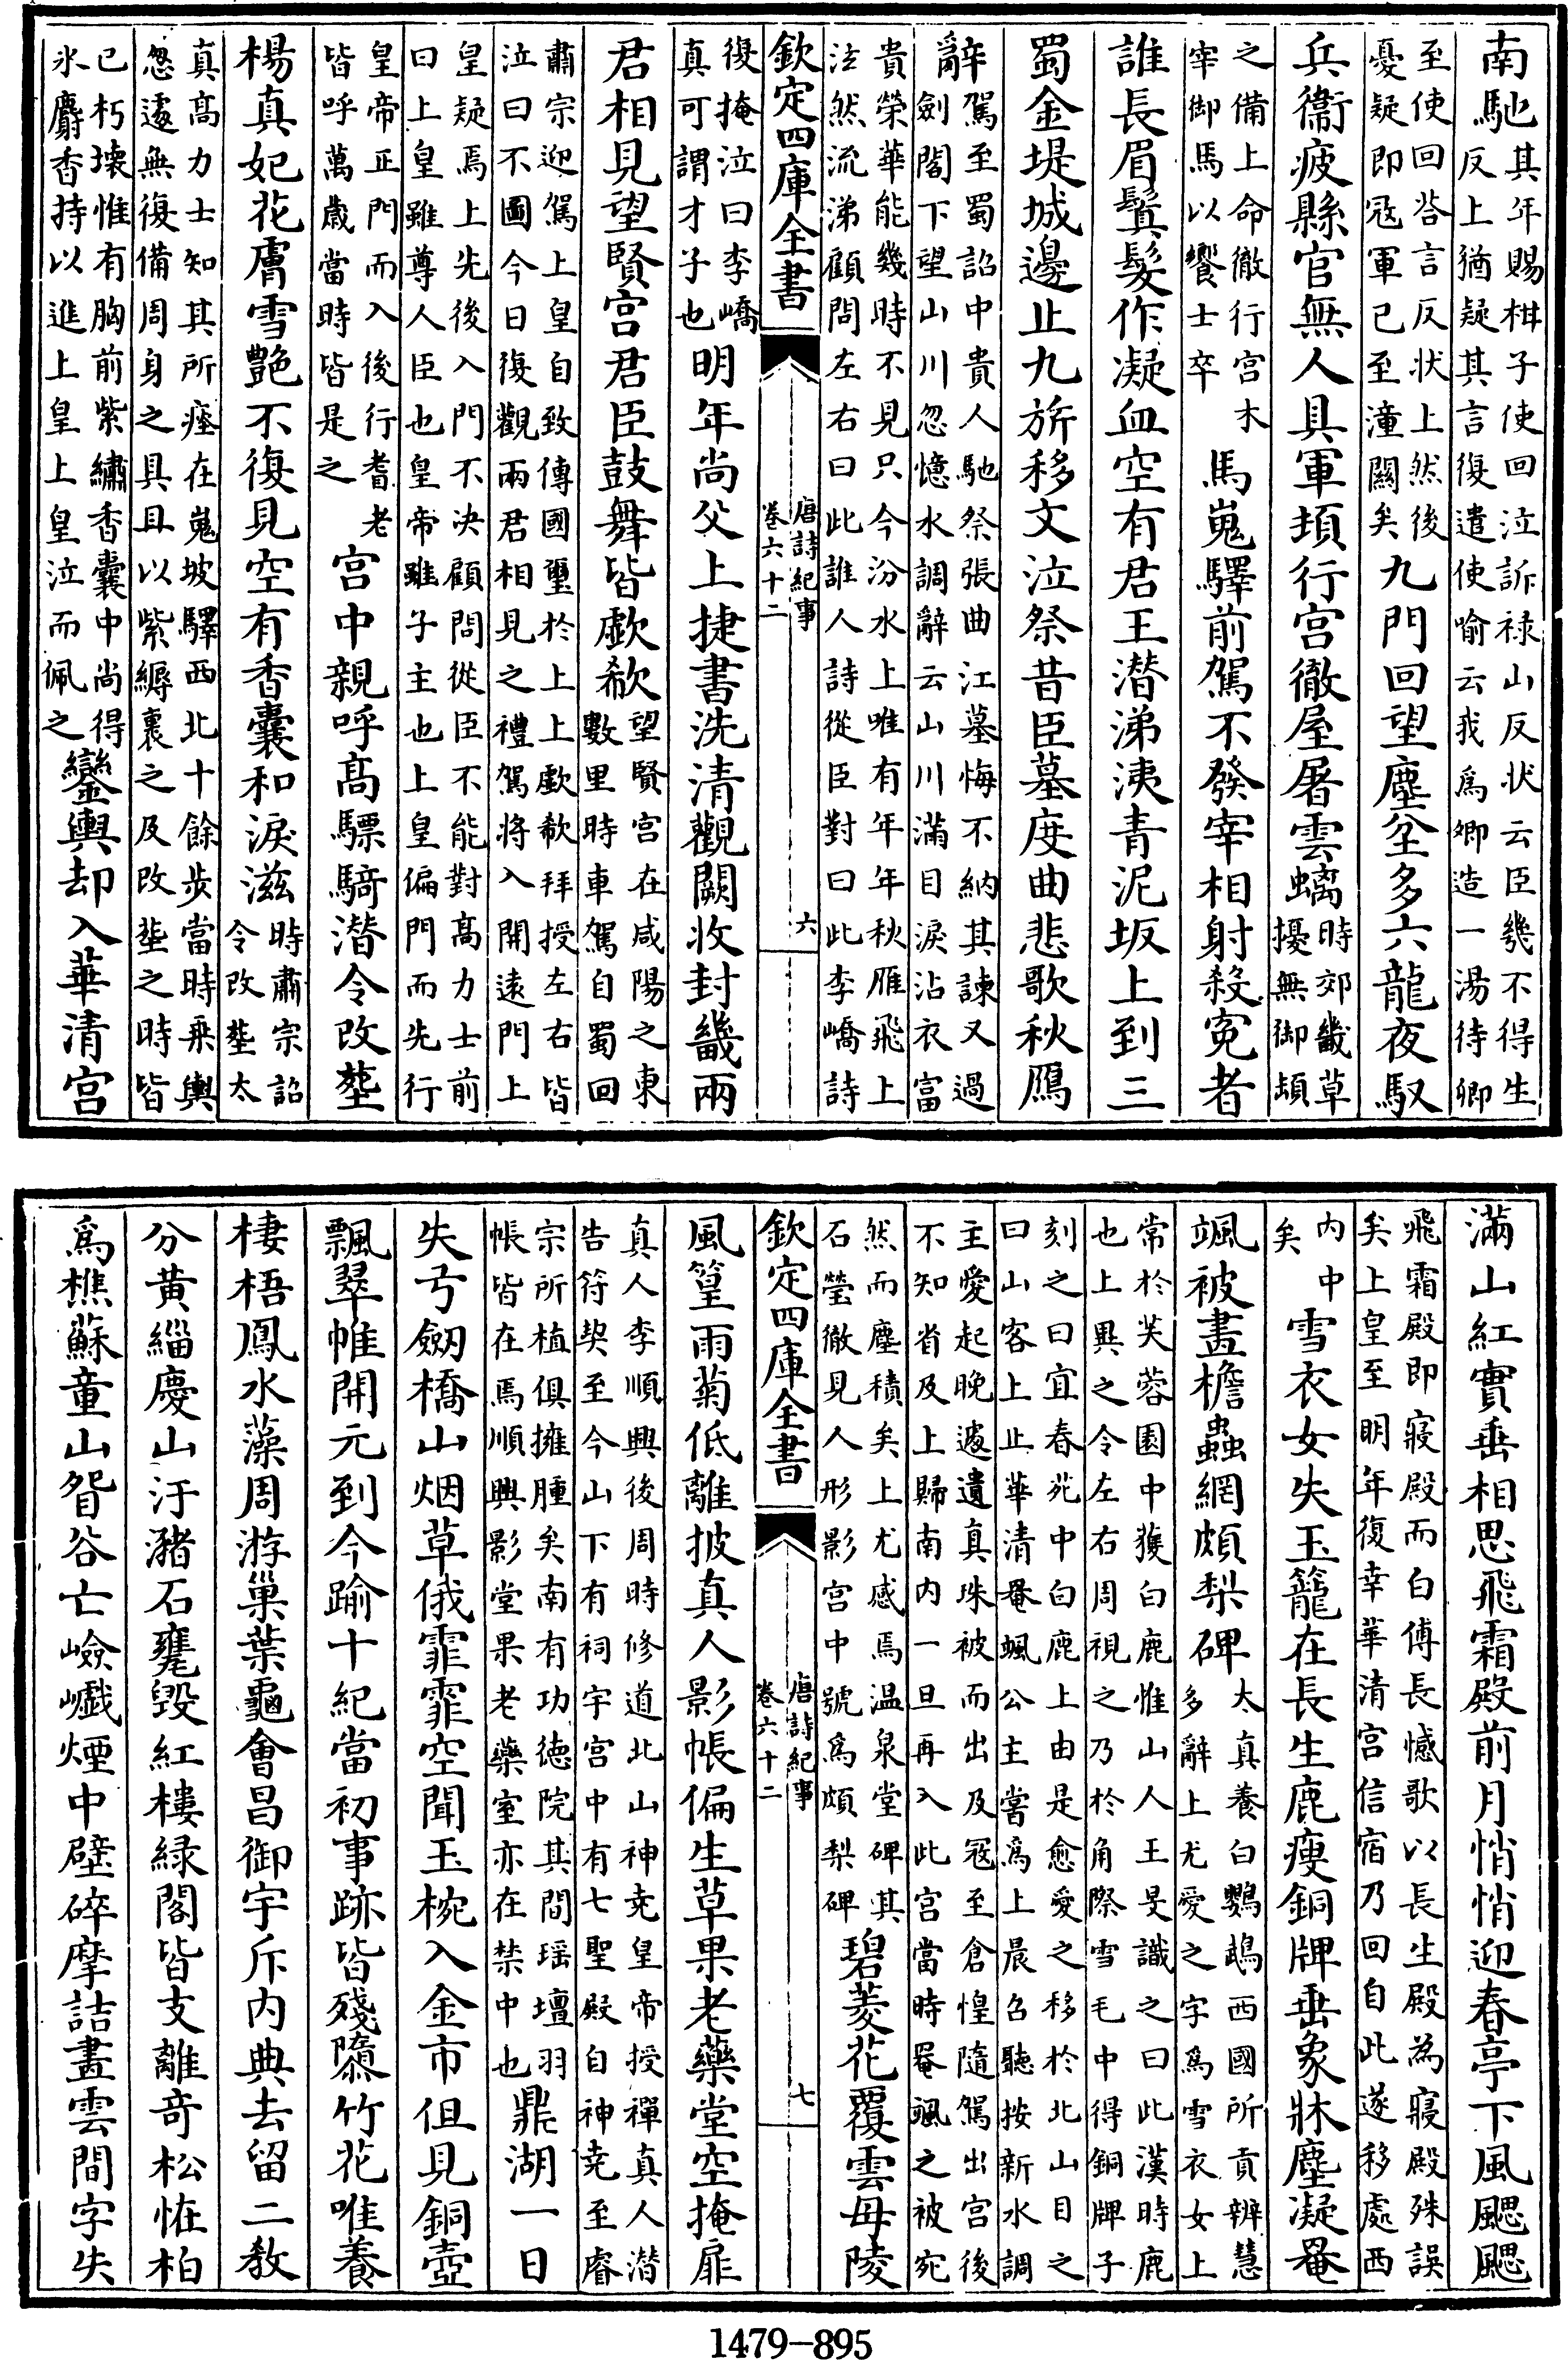 南馳其年賜柑子使回泣訴祿山反狀云臣幾不得生
反上猶疑其言復遣使喻云我為卿造一湯待卿
至使回答言反狀上然後
憂疑即冦軍已至潼關矣
九門回望塵坌多六龍夜馭
兵衞疲縣官無人具軍頓行宮徹屋屠雲螭時郊畿草
擾無御頓
之備上命徹行宮木
宰御馬以饗士卒
馬嵬驛前駕不發宰相射殺寃者
誰長眉鬒髮作凝血空有君王潛涕洟青泥坂上到三
蜀金堤城邊止九旂移文泣祭昔臣墓度曲悲歌秋鴈
辭駕至蜀詔中貴人馳祭張曲江墓悔不納其諫又過
劍閣下望山川忽憶水調辭云山川滿目淚沾衣富
貴榮華能幾時不見只今汾水上唯有年年秋雁飛上
泫然流涕顧問左右曰此誰人詩從臣對曰此李嶠詩
欽定四庫全書
唐詩紀事
卷六十二
六
復掩泣曰李嶠
真可謂才子也
明年尚父上捷書洗清觀闕收封畿兩
君相見望賢宮君臣鼓舞皆歔欷望賢宮在咸陽之東
數里時車駕自蜀回
肅宗迎駕上皇自致傳國璽於上上歔欷拜授左右皆
泣曰不圖今日復觀兩君相見之禮駕將入開遠門上
皇疑焉上先後入門不决顧問從臣不能對高力士前
曰上皇雖尊人臣也皇帝雖子主也上皇偏門而先行
皇帝正門而入後行耆老
皆呼萬歲當時皆是之
宮中親呼高驃騎潛令改塟
楊真妃花膚雪艷不復見空有香囊和淚滋時肅宗詔
令改塟太
真高力士知其所瘞在嵬坡驛西北十餘步當時乘輿
怱遽無復備周身之具且以紫縟裹之及改塟之時皆
已朽壞惟有胸前紫繡香囊中尚得
氷麝香持以進上皇上皇泣而佩之
鑾輿却入華清宮
滿山紅實垂相思飛霜殿前月悄悄迎春亭下風颸颸
飛霜殿即寢殿而白傅長憾歌以長生殿為寢殿殊誤
矣上皇至明年復幸華清宮信宿乃回自此遂移處西
內中
矣
雪衣女失玉籠在長生鹿瘦銅牌垂象牀塵凝罨
颯被畫檐蟲網頗梨碑太真養白鸚鵡西國所貢辨慧
多辭上尤愛之字為雪衣女上
常於芙蓉園中獲白鹿惟山人王旻識之曰此漢時鹿
也上異之令左右周視之乃於角際雪毛中得銅牌子
刻之曰宜春苑中白鹿上由是愈愛之移於北山目之
曰山客上止華清罨颯公主嘗為上晨召聽按新水調
主愛起晚遽遺真珠被而出及冦至倉惶隨駕出宮後
不知省及上歸南內一旦再入此宮當時罨颯之被宛
然而塵積矣上尤感焉温泉堂碑其
石瑩徹見人形影宮中號為頗梨碑
碧菱花覆雲母陵
欽定四庫全書
唐詩紀事
卷六十二
七
風篁雨菊低離披真人影帳偏生草果老藥堂空掩扉
真人李順興後周時修道北山神堯皇帝授禪真人潛
告符契至今山下有祠宇宮中有七聖殿自神堯至睿
宗所植俱擁腫矣南有功德院其間瑶壇羽
帳皆在焉順興影堂果老藥室亦在禁中也
鼎湖一日
失弓劒橋山烟草俄霏霏空聞玉椀入金市但見銅壺
飄翠帷開元到今踰十紀當初事跡皆殘隳竹花唯養
棲梧鳳水藻周游巢葉龜會昌御宇斥內典去留二教
分黄緇慶山汙瀦石甕毀紅樓緑閣皆支離奇松恠柏
為樵蘇童山眢谷亡嶮巇煙中壁碎摩詰畫雲間字失
1479-895